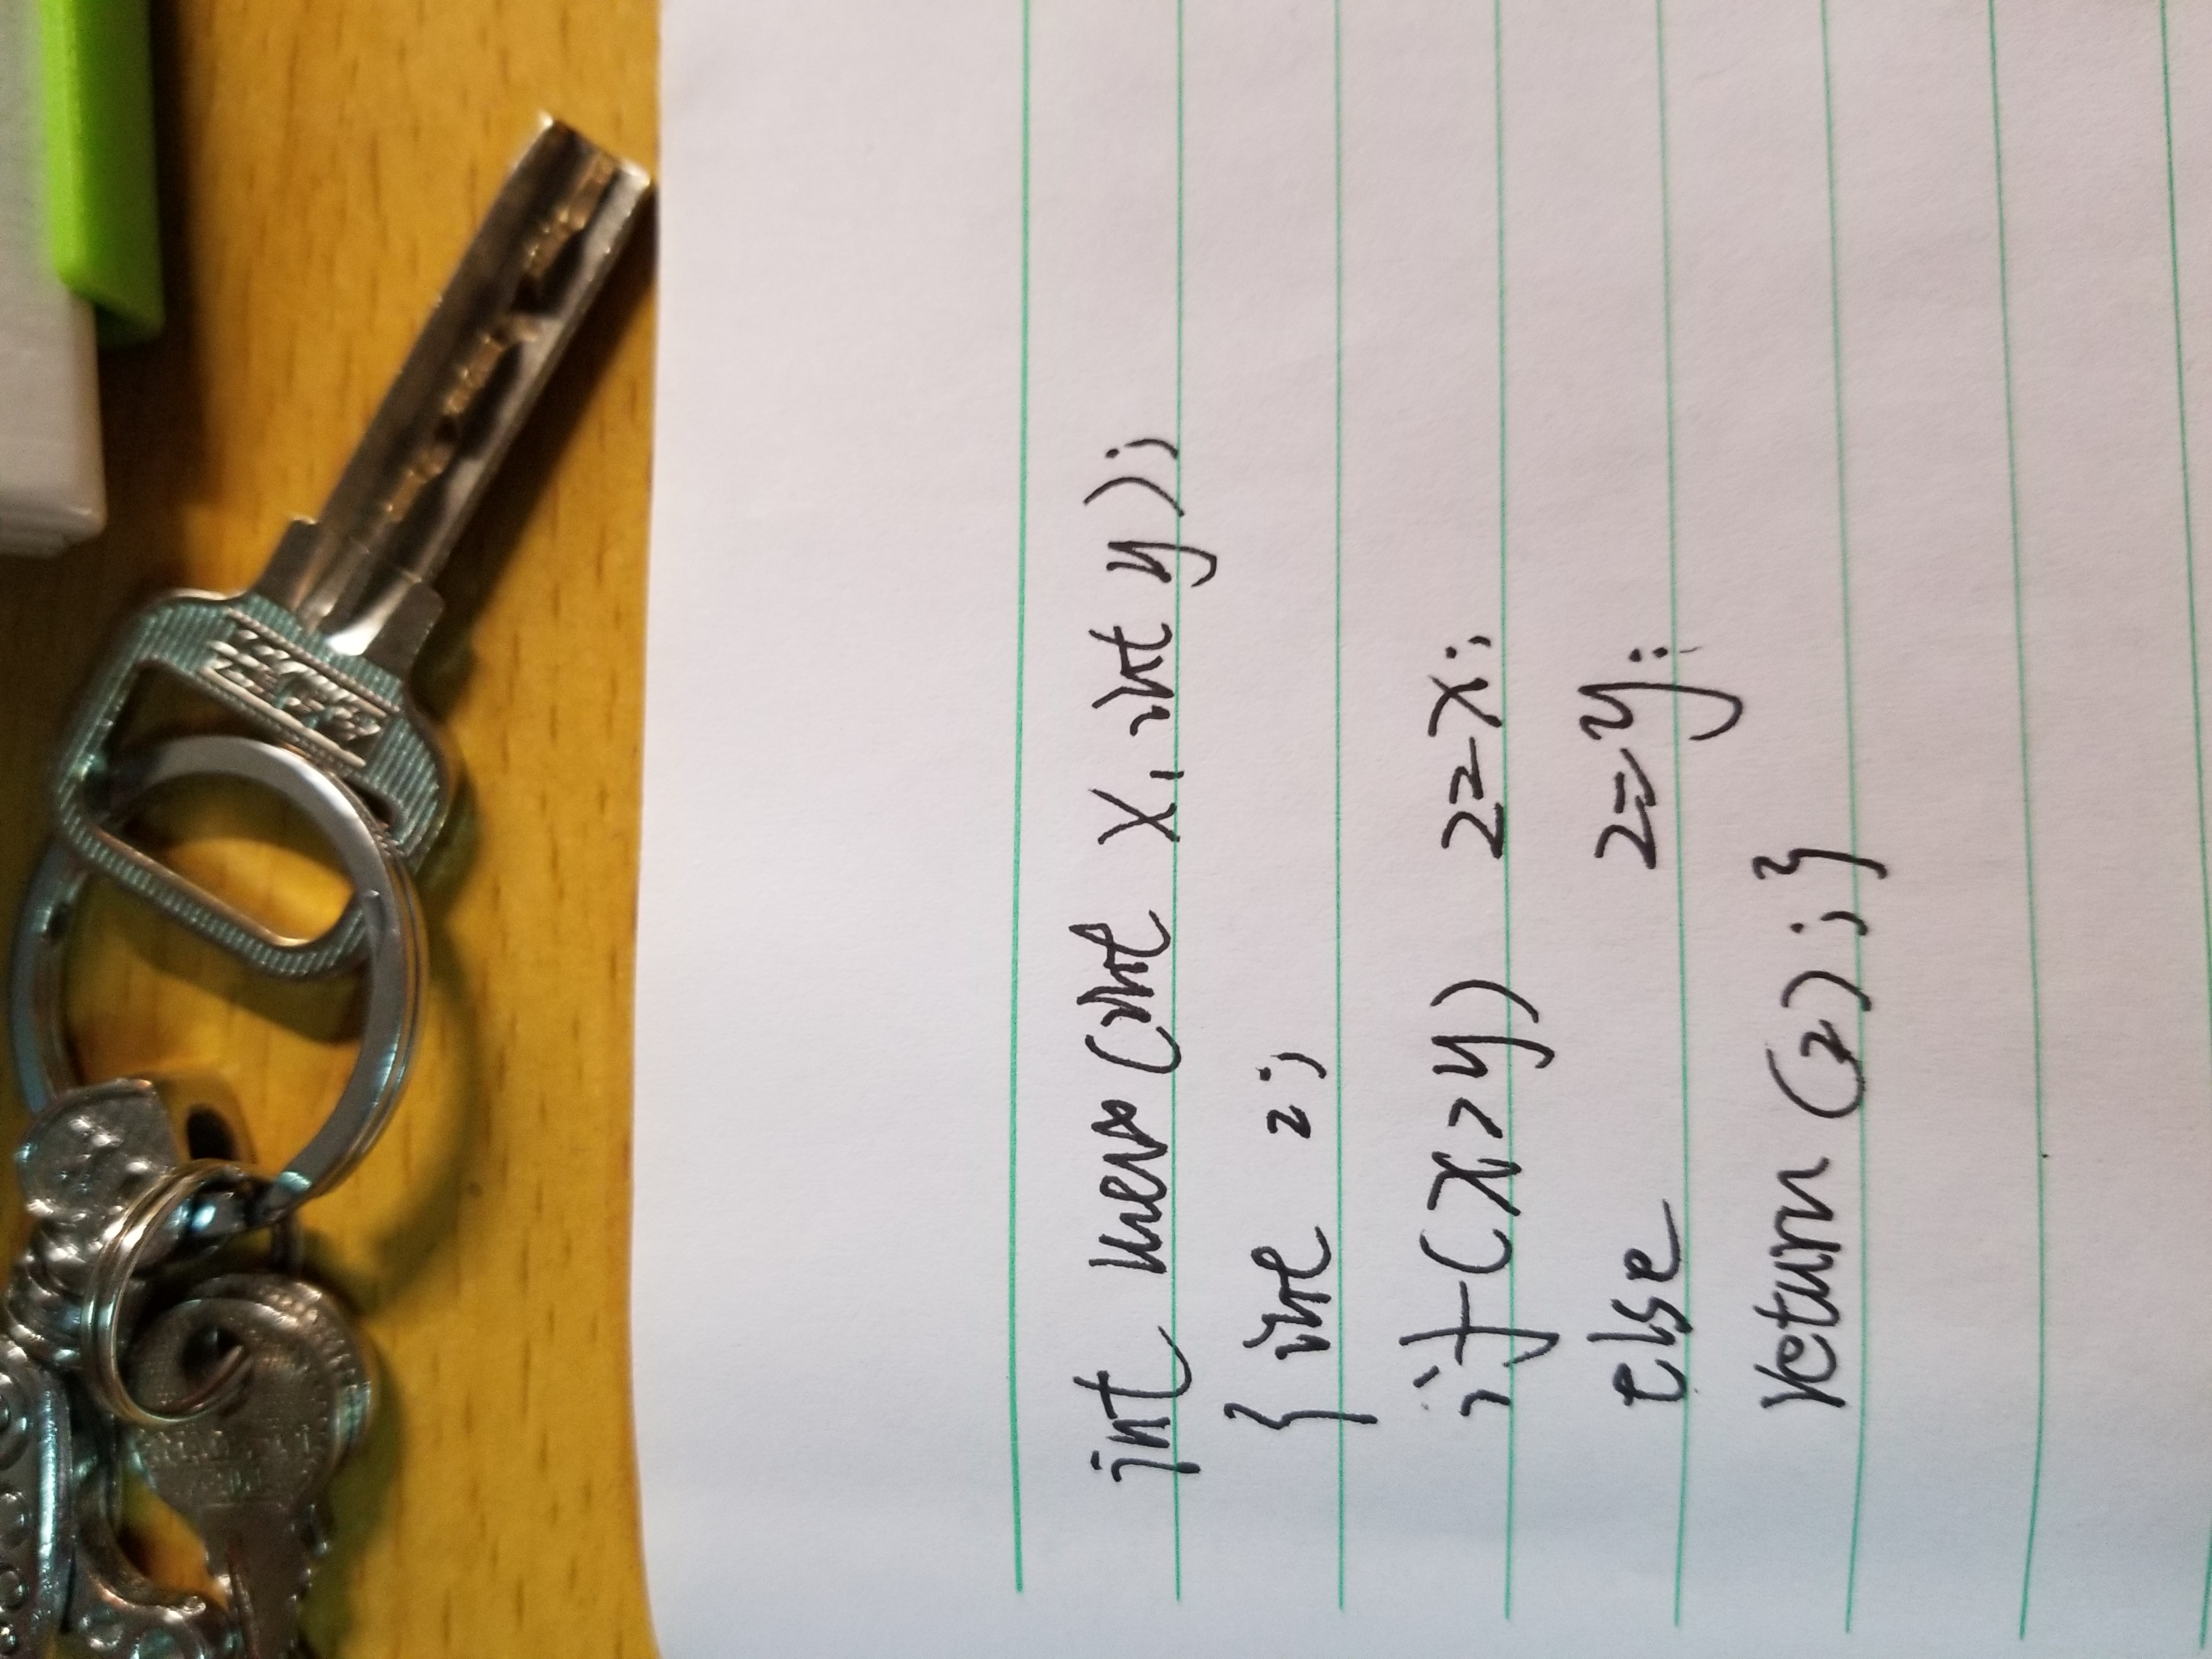 int max(int x, int y);
{int z;
if(x>y) z=x;
else z=y;
return (z);}